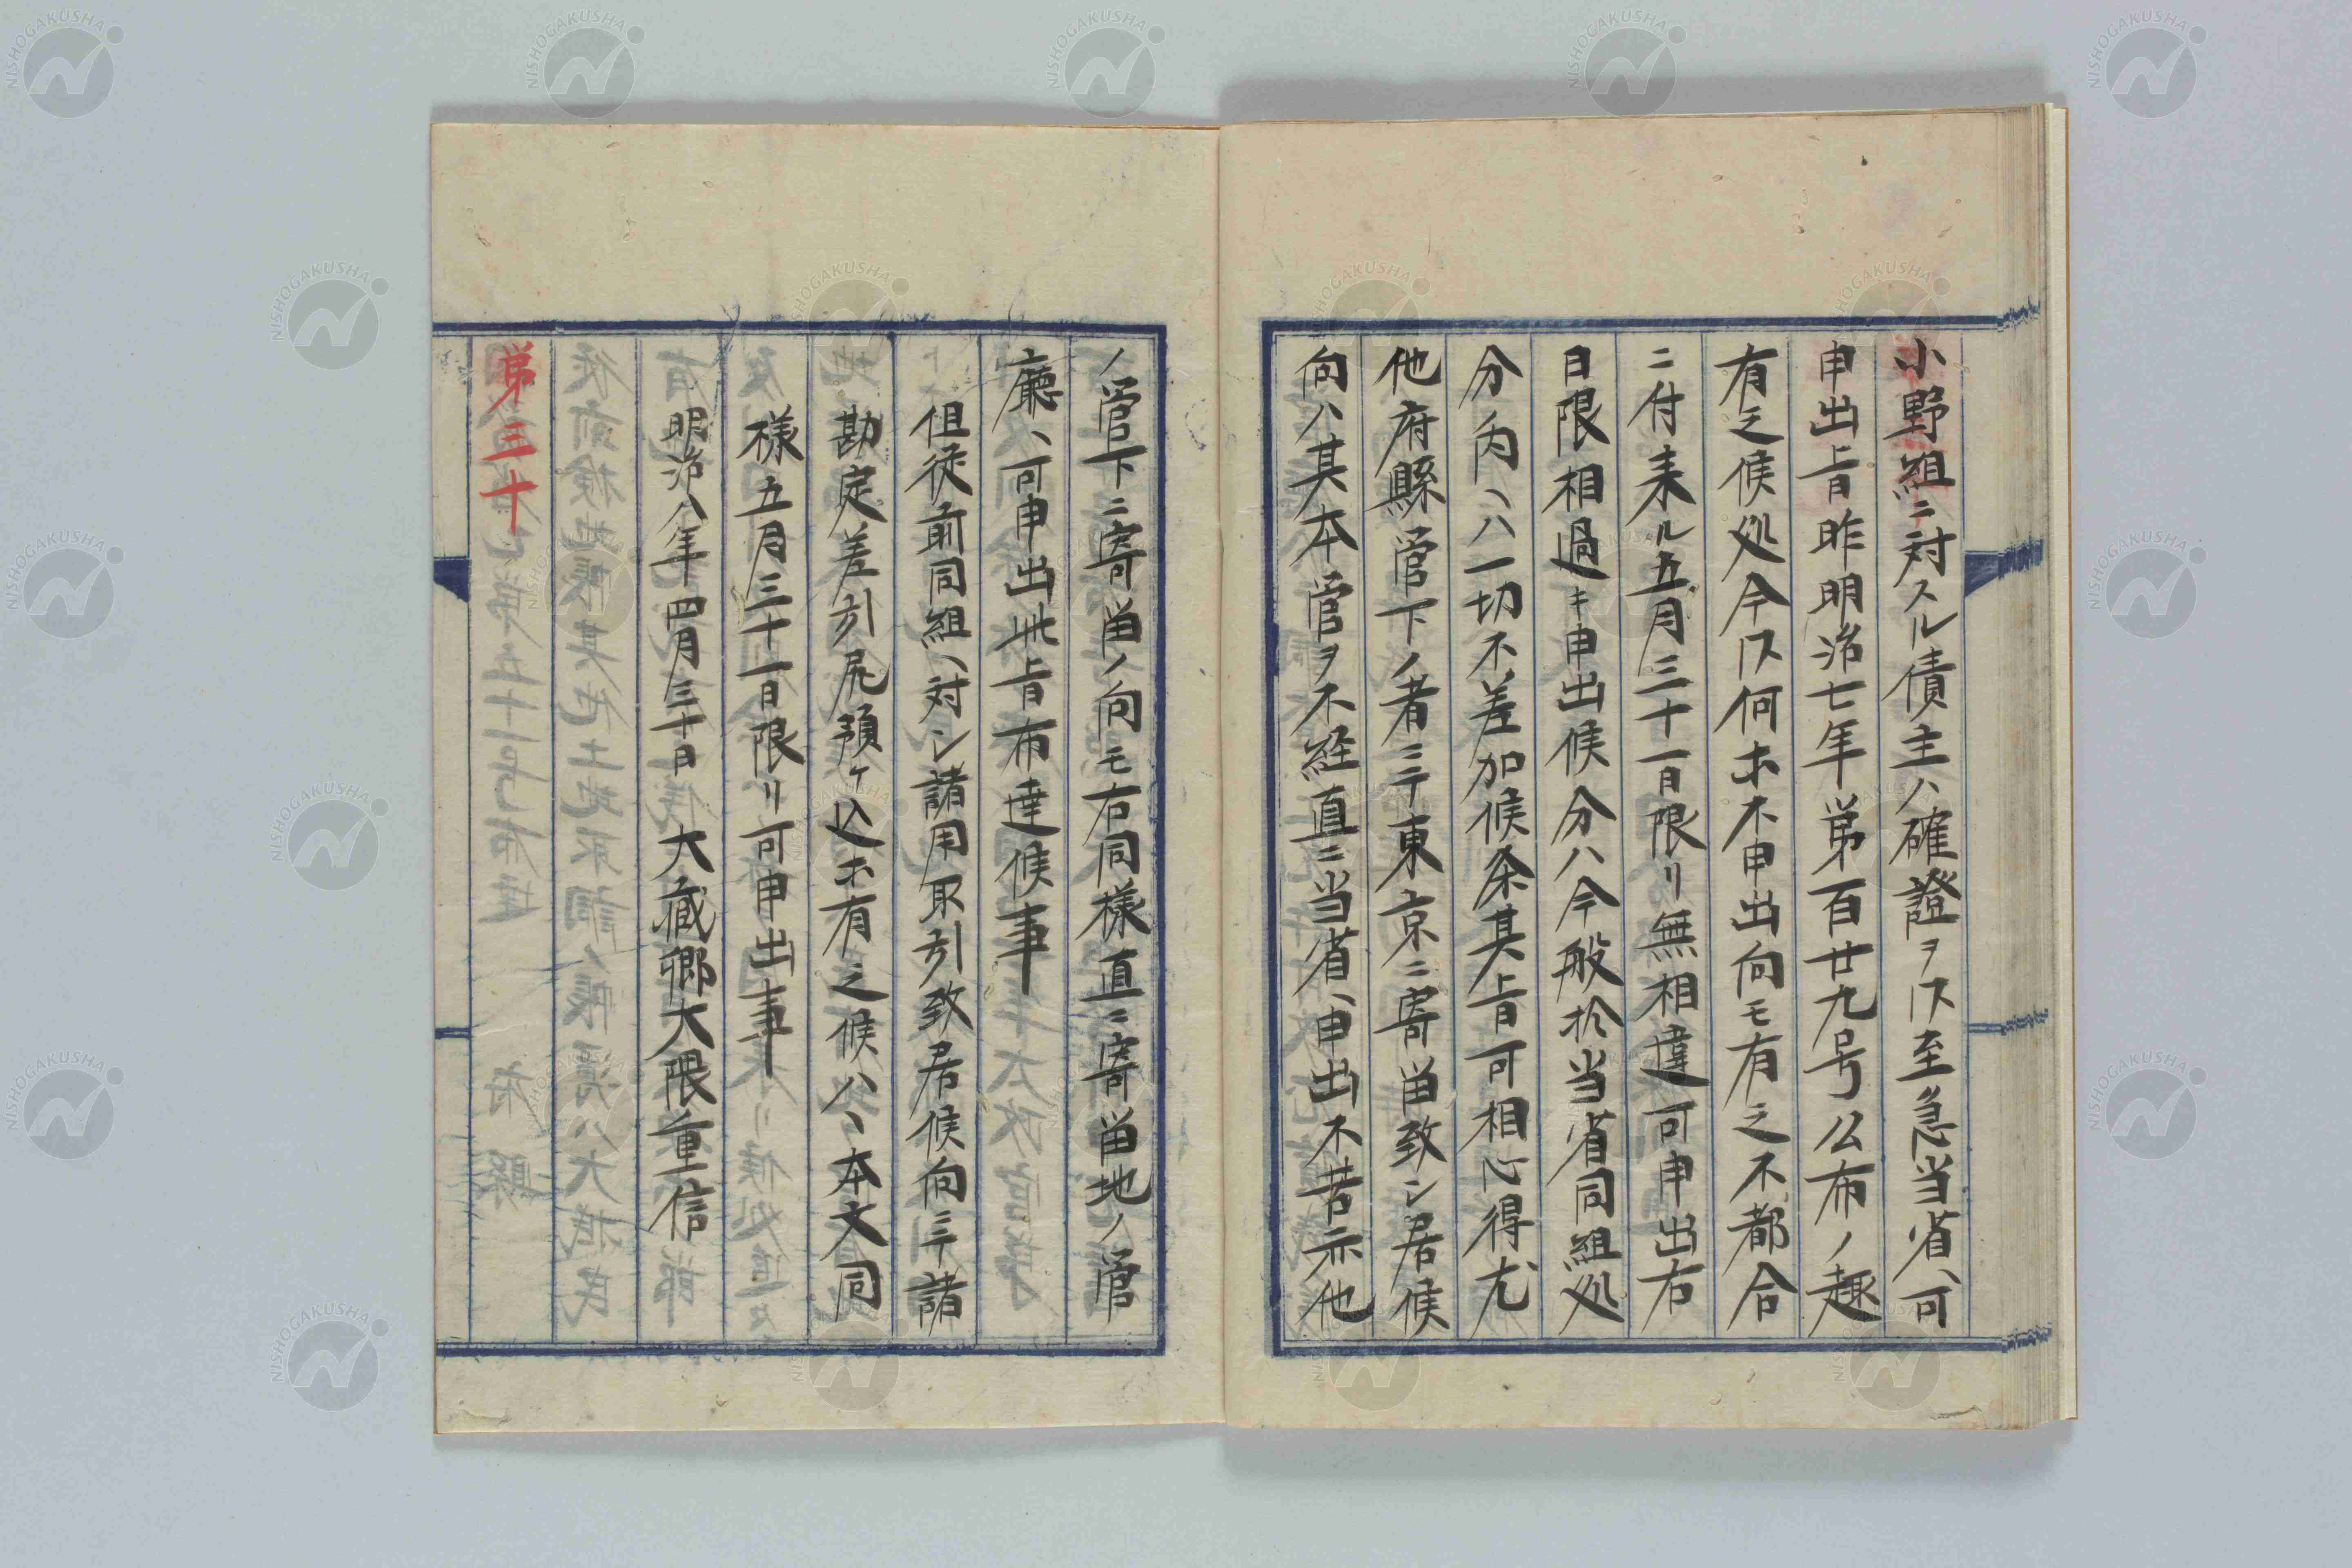 小野組ニ対スル債主ハ確證ヲ以至急当省ヘ可
申出旨昨明治七年第百廿九号公布ノ趣
有之候処今以何ホ不申出向モ有之不都合
ニ付来ル五月三十一日限リ無相違可申出右
日限相過キ申出候分ハ今般於当省同組処
分内ヘハ一切不差加候条其旨可相心得尤
他府縣管下ノ者ニテ東京ニ寄畄致シ居候
向ハ其本管ヲ不経直ニ当省ヘ申出不苦亦他
ノ管下ニ寄畄ノ向モ右同様直ニ寄畄地ノ管
廳ヘ可申出此旨布達候事
但従前同組ヘ対シ諸用取引致居候向ニテ諸
勘定差引尻預ケ込ホ有之候ハヽ本文同
様五月三十一日限リ可申出事
明治八年四月三十日 大蔵卿大隈重信
第三十
NISHOGAKUSHA